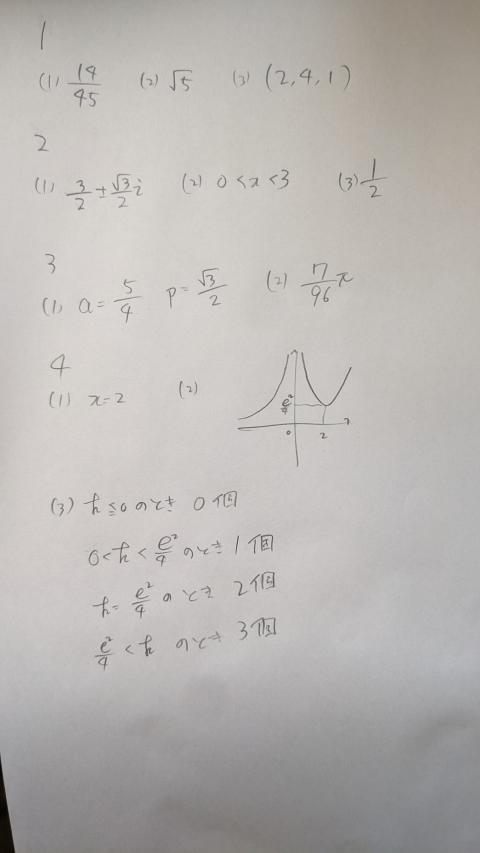 1
(1) 14/45 (2) √5 (3) (2, 4, 1)
2
(1) 3/2 ± √3/2 i (2) 0 < x < 3 (3) 1/2
3
(1) a = 5/4 p = √3/2 (2) 17/96 π
4
(1) x = 2 (2)
e²/4
0 2 x
(3) k ≦ 0 のとき 0個
0 < k < e²/4 のとき 1個
k = e²/4 のとき 2個
e²/4 < k のとき 3個